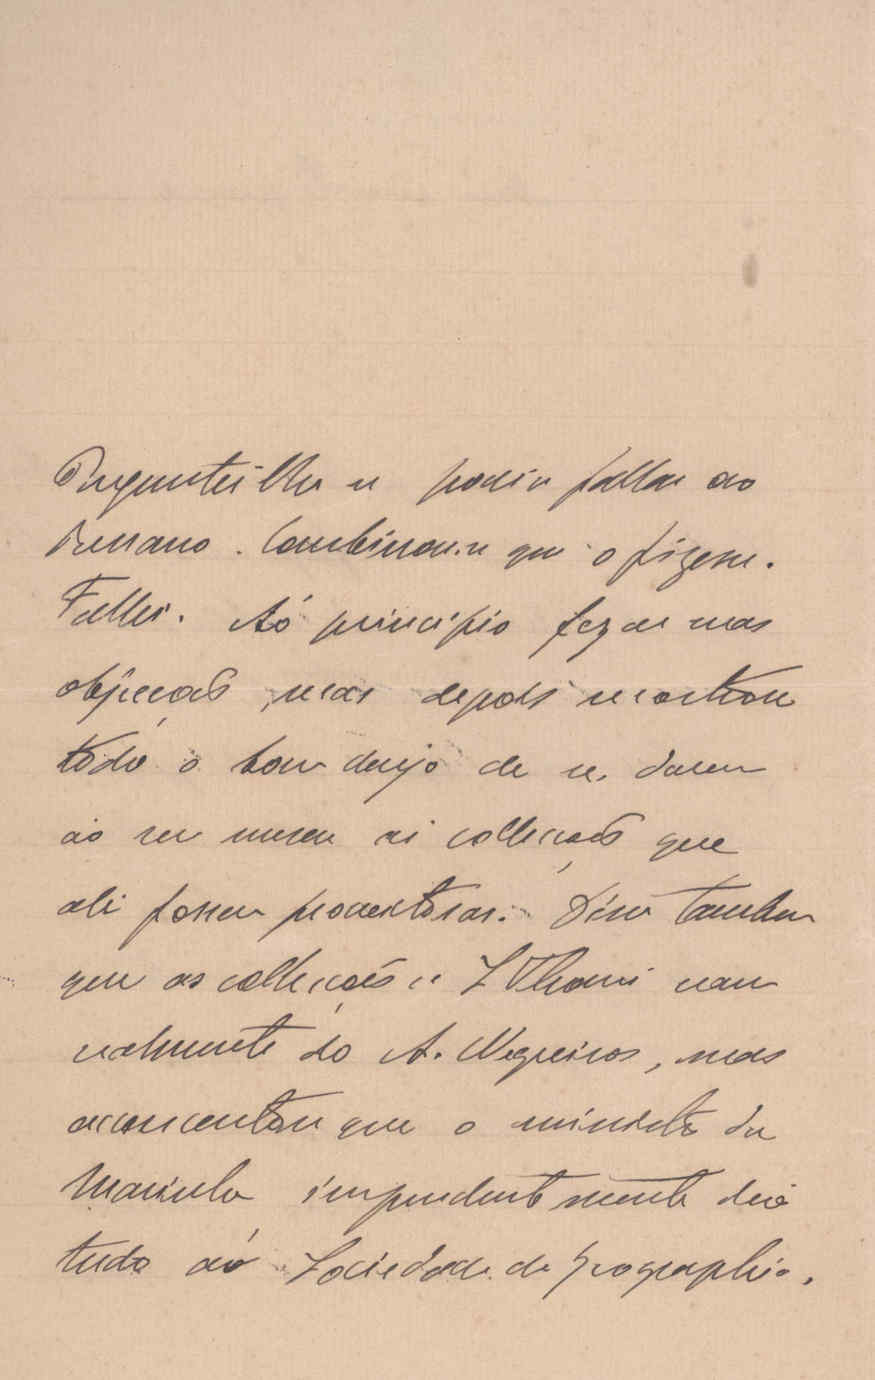 Perguntei lhe se podia fallar ao
Bensano. Combinou-se que o fizesse.
Fallei. Ao principio fez au mas
objecções, mas depois mostrou
todo o bom desejo de se darem
ao seu museu as collecções que
ali fossem promettidas. Disse tambem
que as collecções de S Thomé eram
realmente do A. Negreiros, mas
accrescentou que o ministro da
Marinha imprudentemente dera
tudo á Sociedade de Geographia.